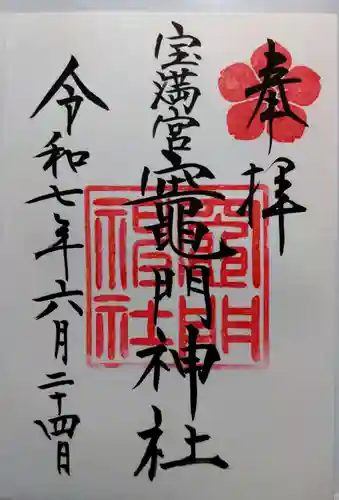 奉拝
宝満宮竈門神社
竈門神社
令和七年六月二十四日